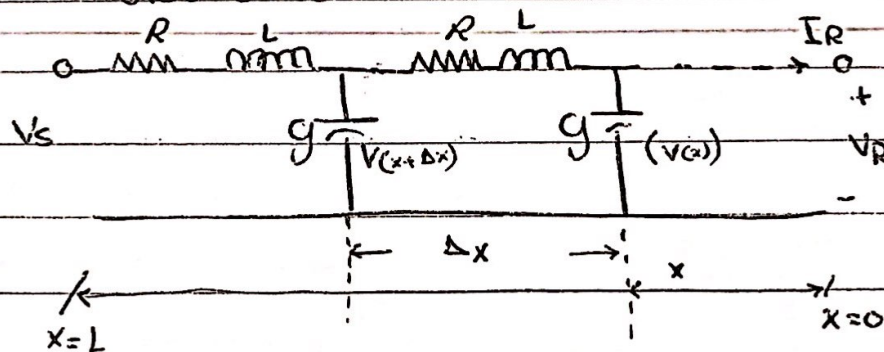 R L R L IR
Vs g V(x+Δx) g (V(x)) + VR -
Δx
x
x=L x=0